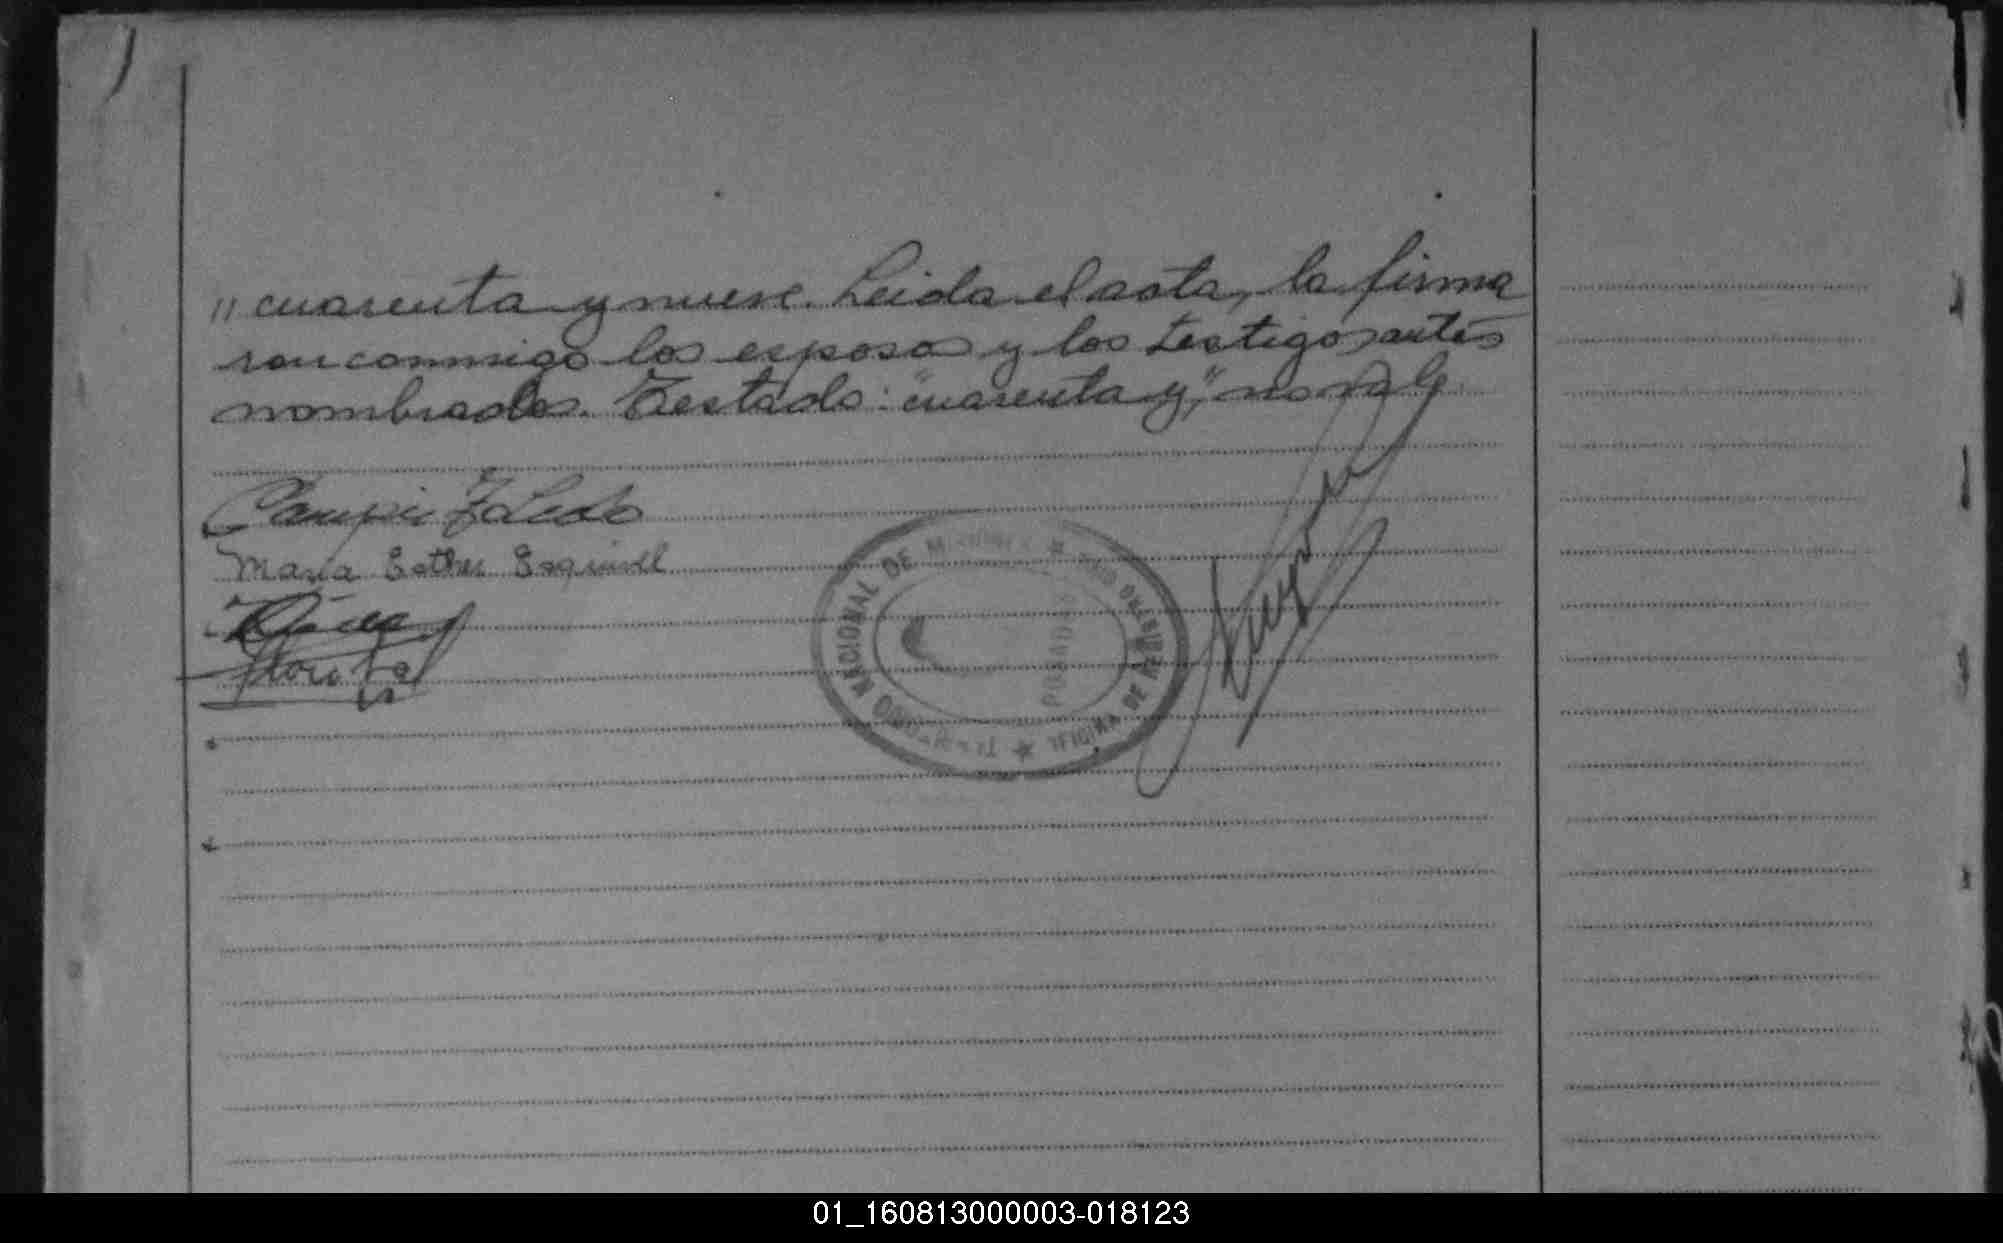 " cuarenta y nueve. Leida el acta, la firma
ron conmigo los esposos y los testigos antes
nombrados. Testado: "cuarenta y", no vale
Campi Toledo
Maria Esther Esquivel
NACIONAL DE
REGISTRO
OFICINA DE
POSADAS
01_160813000003-018123